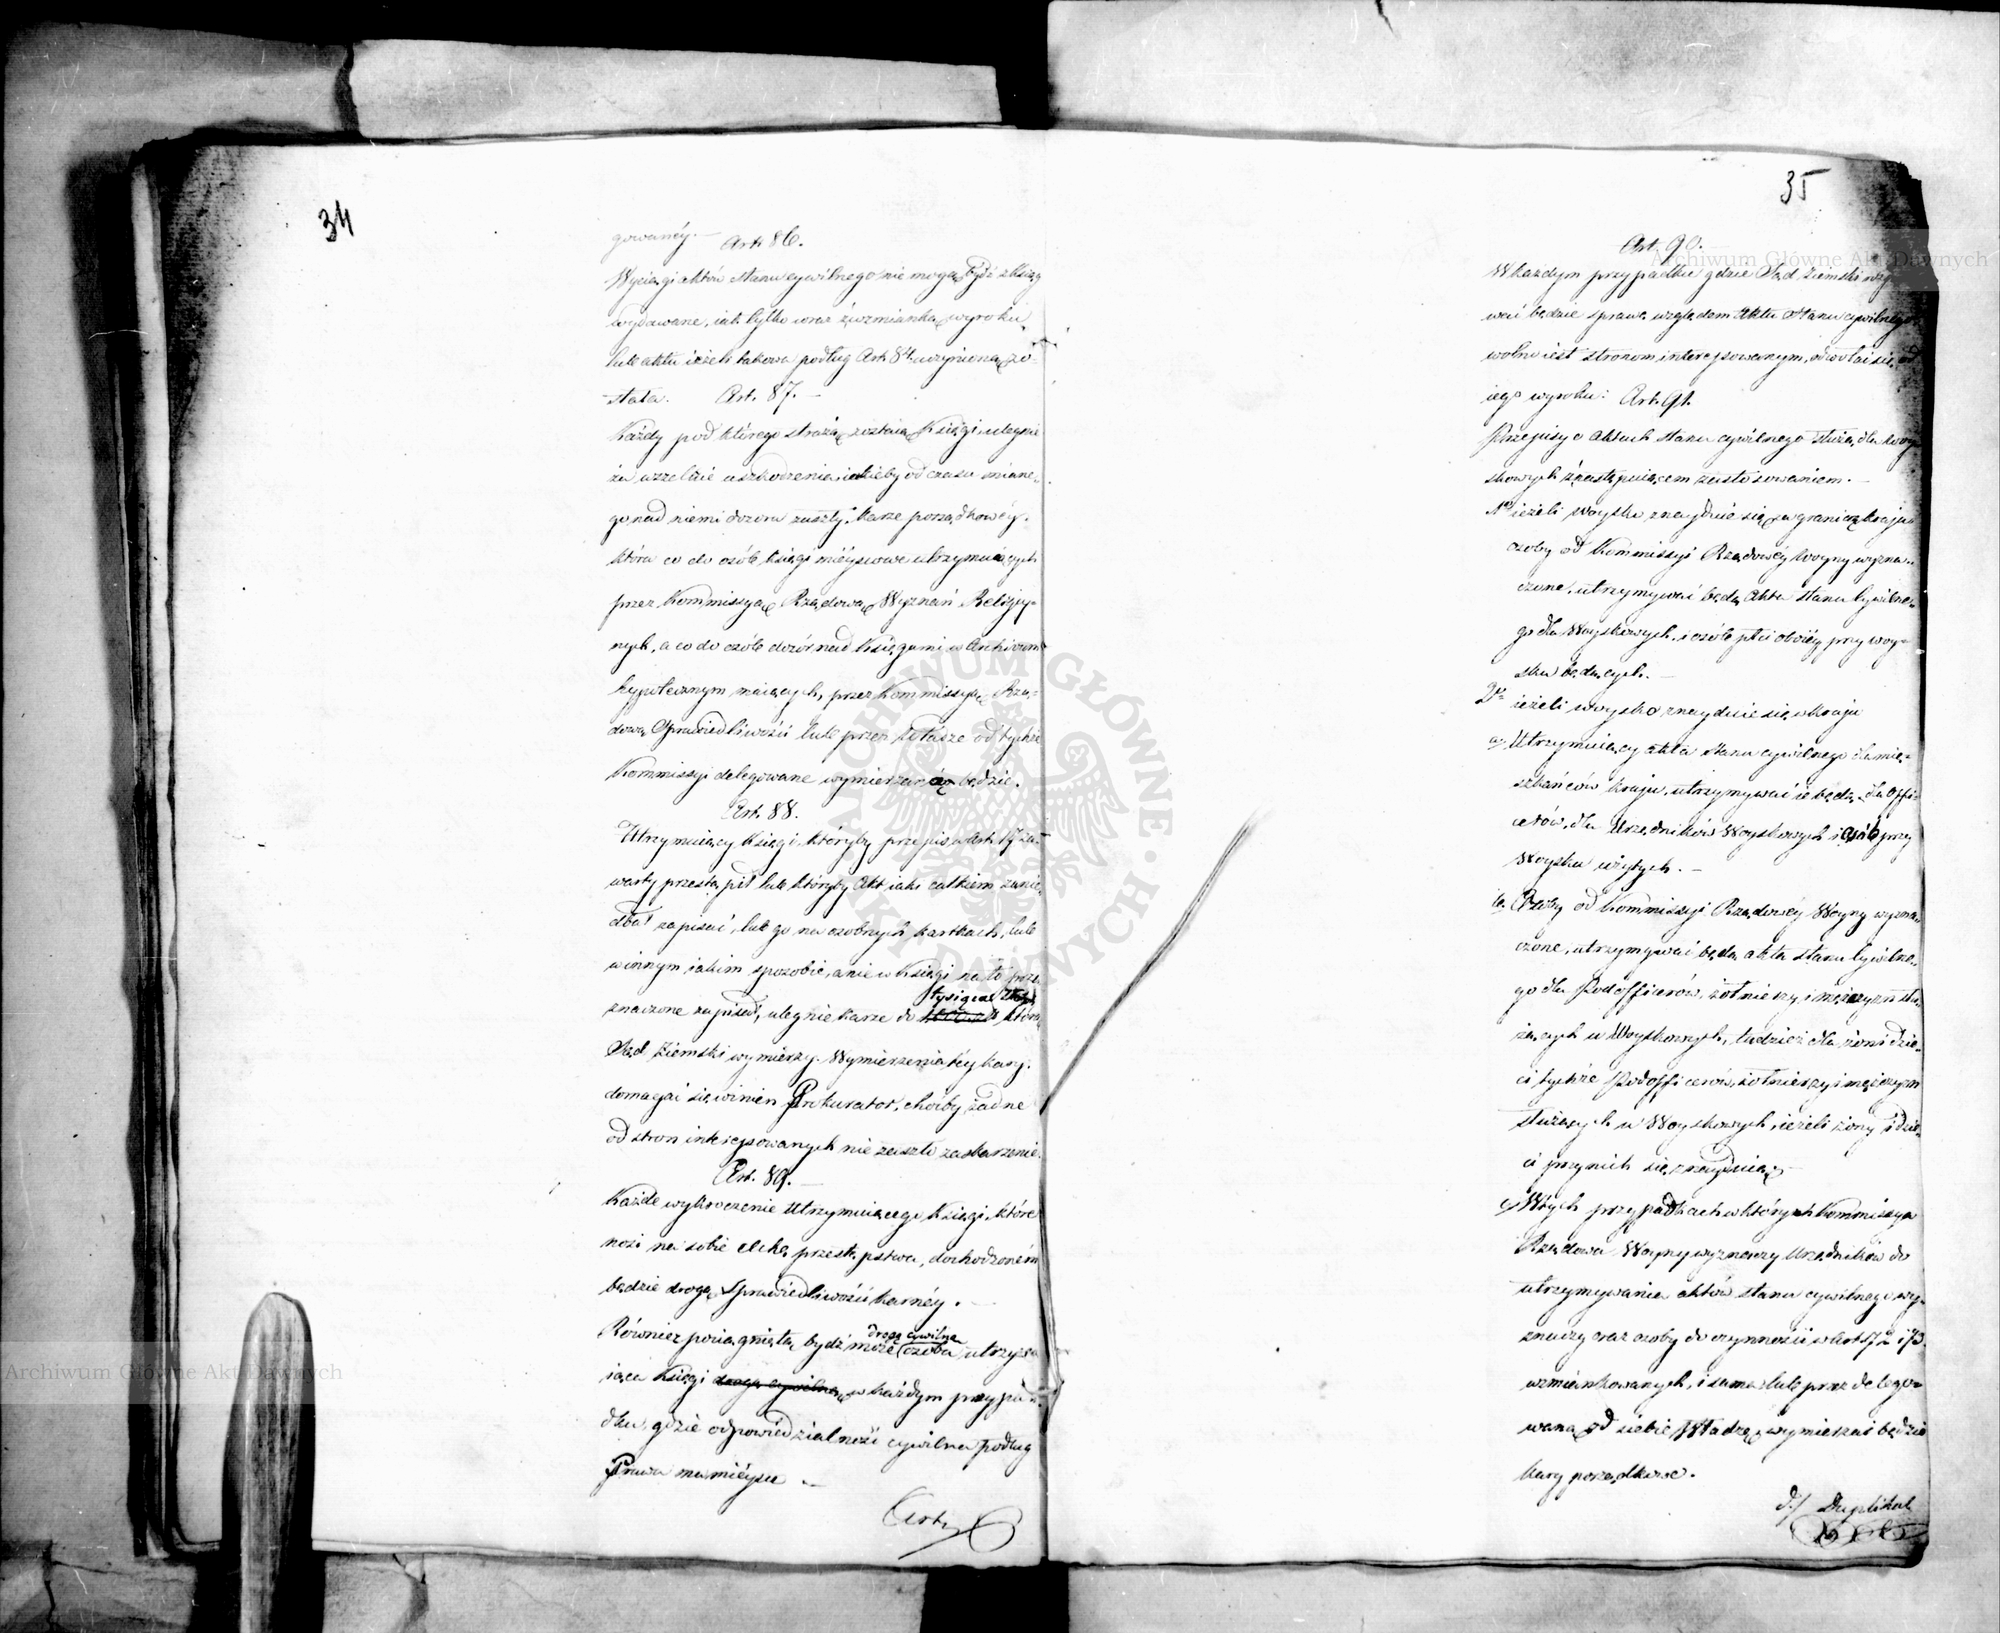 34
gowanéy. —
Art. 86.
Wyciągi aktów stanu cywilnego nie mogą bydź z Księg
wydawane, iak tylko wraz z wzmianką wyroku,
lub aktu ieżeli takowa podług Art. 84. uczynioną zo-
stała. Art. 87. —
Każdy pod którego strażą zostaią Księgi ulegnie
za wszelkie uszkodzenia iakieby od czasu miane-
go nad niemi dozoru zaszły, karze porządkowéy.
która co do osób księgi mieyscowe utrzymuiących
przez Kommissyą Rządową Wyznań Religiy-
nych, a co do osób dozór nad Księgami w Archiwum
hypotecznym maiących, przez Kommissyą Rzą-
dową Sprawiedliwości lub przez Władze od tychże
Kommissyi delegowane wymierzaną będzie.
Art. 88.
Utrzymuiący Księgi, któryby przepis w Art. 17 za-
warty przestąpił lub któryby Akt iaki całkiem zanie-
dbał zapisać, lub go na osobnych kartkach, lub
w innym iakim sposobie, a nie w Księgi na to prze-
tysiąca Złotych
znaczone zapisał, ulegnie karze do którą
Sąd Ziemski wymierzy. Wymierzenia téy kary
domagać się winien Prokurator, choćby żadne
od stron interessowanych nie zaszło zaskarzenie.
Art. 89. —
Każde wykroczenie Utrzymuiącego Księgi, które
nosi na sobie cechę przestępstwa, dochodzoném
będzie drogą Sprawiedliwości karnéy. —
drogą cywilną
Również pociągnięta bydź może osoba utrzymu-
iąca Księgi drogą cywilną w każdym przypa-
dku, gdzie odpowiedzialność cywilna podług
Prawa ma mieysce —
Art.
35
Art. 90. —
W każdym przypadku gdzie Sąd Ziemski
wać będzie sprawę względem Aktu Stanu cywilnego
wolno iest stronom interessowanym, odwołać się od
iego wyroku: Art. 91.
Przepisy o Aktach stanu cywilnego służą dla woy-
skowych z następuiącem zastosowaniem. —
1o ieżeli woysko znayduie się za granicą kraju
osoby od Kommissyi Rządowéy Woyny wyzna-
czone, utrzymywać będą Akta stanu Cywilne-
go dla Woyskowych, i osób płci obóiéy przy woy-
sku będących. —
2o ieżeli woysko znayduie się w kraju
a, Utrzymuiący akta stanu cywilnego dla mie-
szkańców kraju, utrzymywać ie będą dla Offi-
cerów, dla Urzędników Woyskowych i osób przy
Woysku użytych. —
b, Osoby od Kommissyi Rządowéy Woyny wyzna-
czone, utrzymywać będą akta stanu Cywilne-
go dla Podofficerów, żołnierzy, i mężczyzn słu-
żących w Woyskowych, tudzież dla żon i dzie-
ci tychże Podofficerów, żołnierzy i mężczyzn
służących w Woyskowych, ieżeli żony i dzie-
ci przy nich się znayduią; —
c, W tych przypadkach w których Kommissya
Rządowa Woyny wyznaczy Urzędników do
utrzymywania aktów stanu cywilnego wy-
znaczy oraz osoby do czynności w Art. 72 i 73.
wzmiankowanych, i sama lub przez delego-
waną od siebie Władzę wymierzać będzie
kary porządkowe.
d./ Duplikat